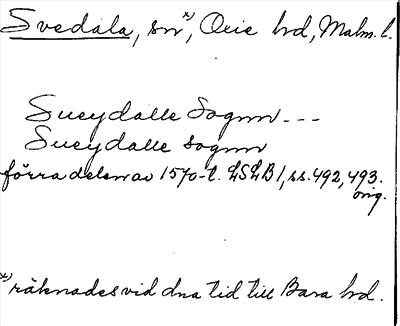 Svedala, sn*), Oxie hd, Malm. l.
Sueydalle Sognn ---
Sueydalle sognn
förra delen av 1570-t. LSLB 1, ss. 492, 493.
orig.
*) räknades vid dna tid till Bara hd.